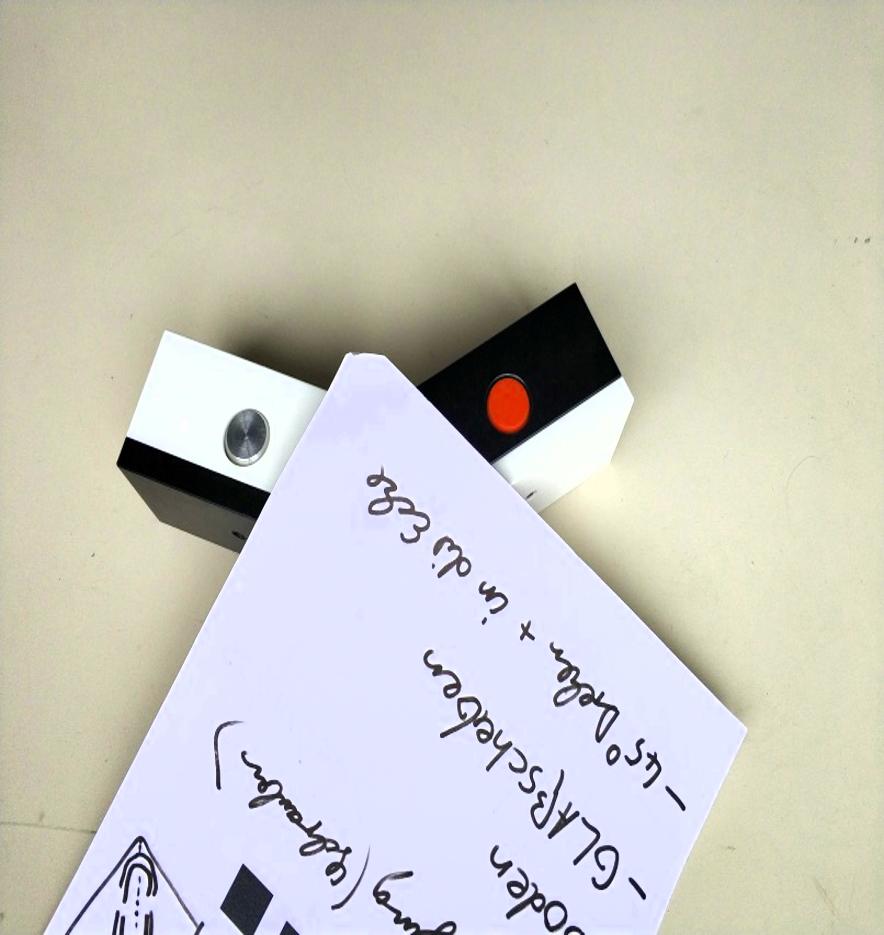 - 45° Drehen + in die Ecke
- GLAßscheiben
oden
gung (Schrauben)